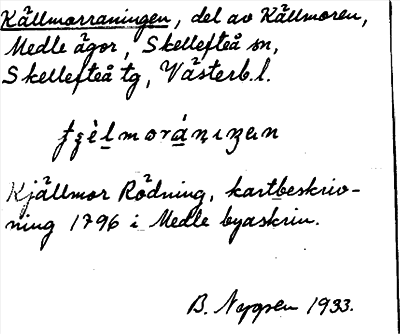 Källmorraningen, del av Källmoren,
Medle ägor, Skellefteå sn,
Skellefteå tg, Västerb.l.
Kjällmor Rödning, kartbeskriv-
ning 1796 i Medle byaskrin.
B. Nygren 1933.